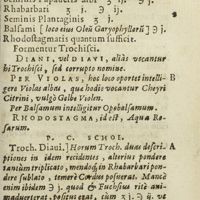 Rhabarbari ʒ j. ℈ ij.
Seminis Plantaginis ʒ j.
Balsami [loco eius Olei Garyophyllorũ] ℈ j.
Rhodostagmatis quantum sufficit.
Formentur Trochisci.
DIANI, vel DIAVI, aliàs vocantur
hi Trochisci, sed corrupto nomine.
PER VIOLAS, hoc loco oportet intelli-
gere Violas albas, quæ hodie vocantur Cheyri
Citrini, vulgò Gelbe Violen.
Per Balsamum intelligitur Opobalsamum.
RHODOSTAGMA, id est, Aqua Ro-
sarum.
P. C. SCHOL.
Troch. Diaui.] Horum Troch. duæ descri- A
ptiones in idem recidentes, alterius pondere
tantùm triplicato, mendoq́; in Rhabarbari pon-
dere sublato, temerè Cordus posuerat. Manè
enim ibidem ℈ j. quod & Fuchsius ritè ani-